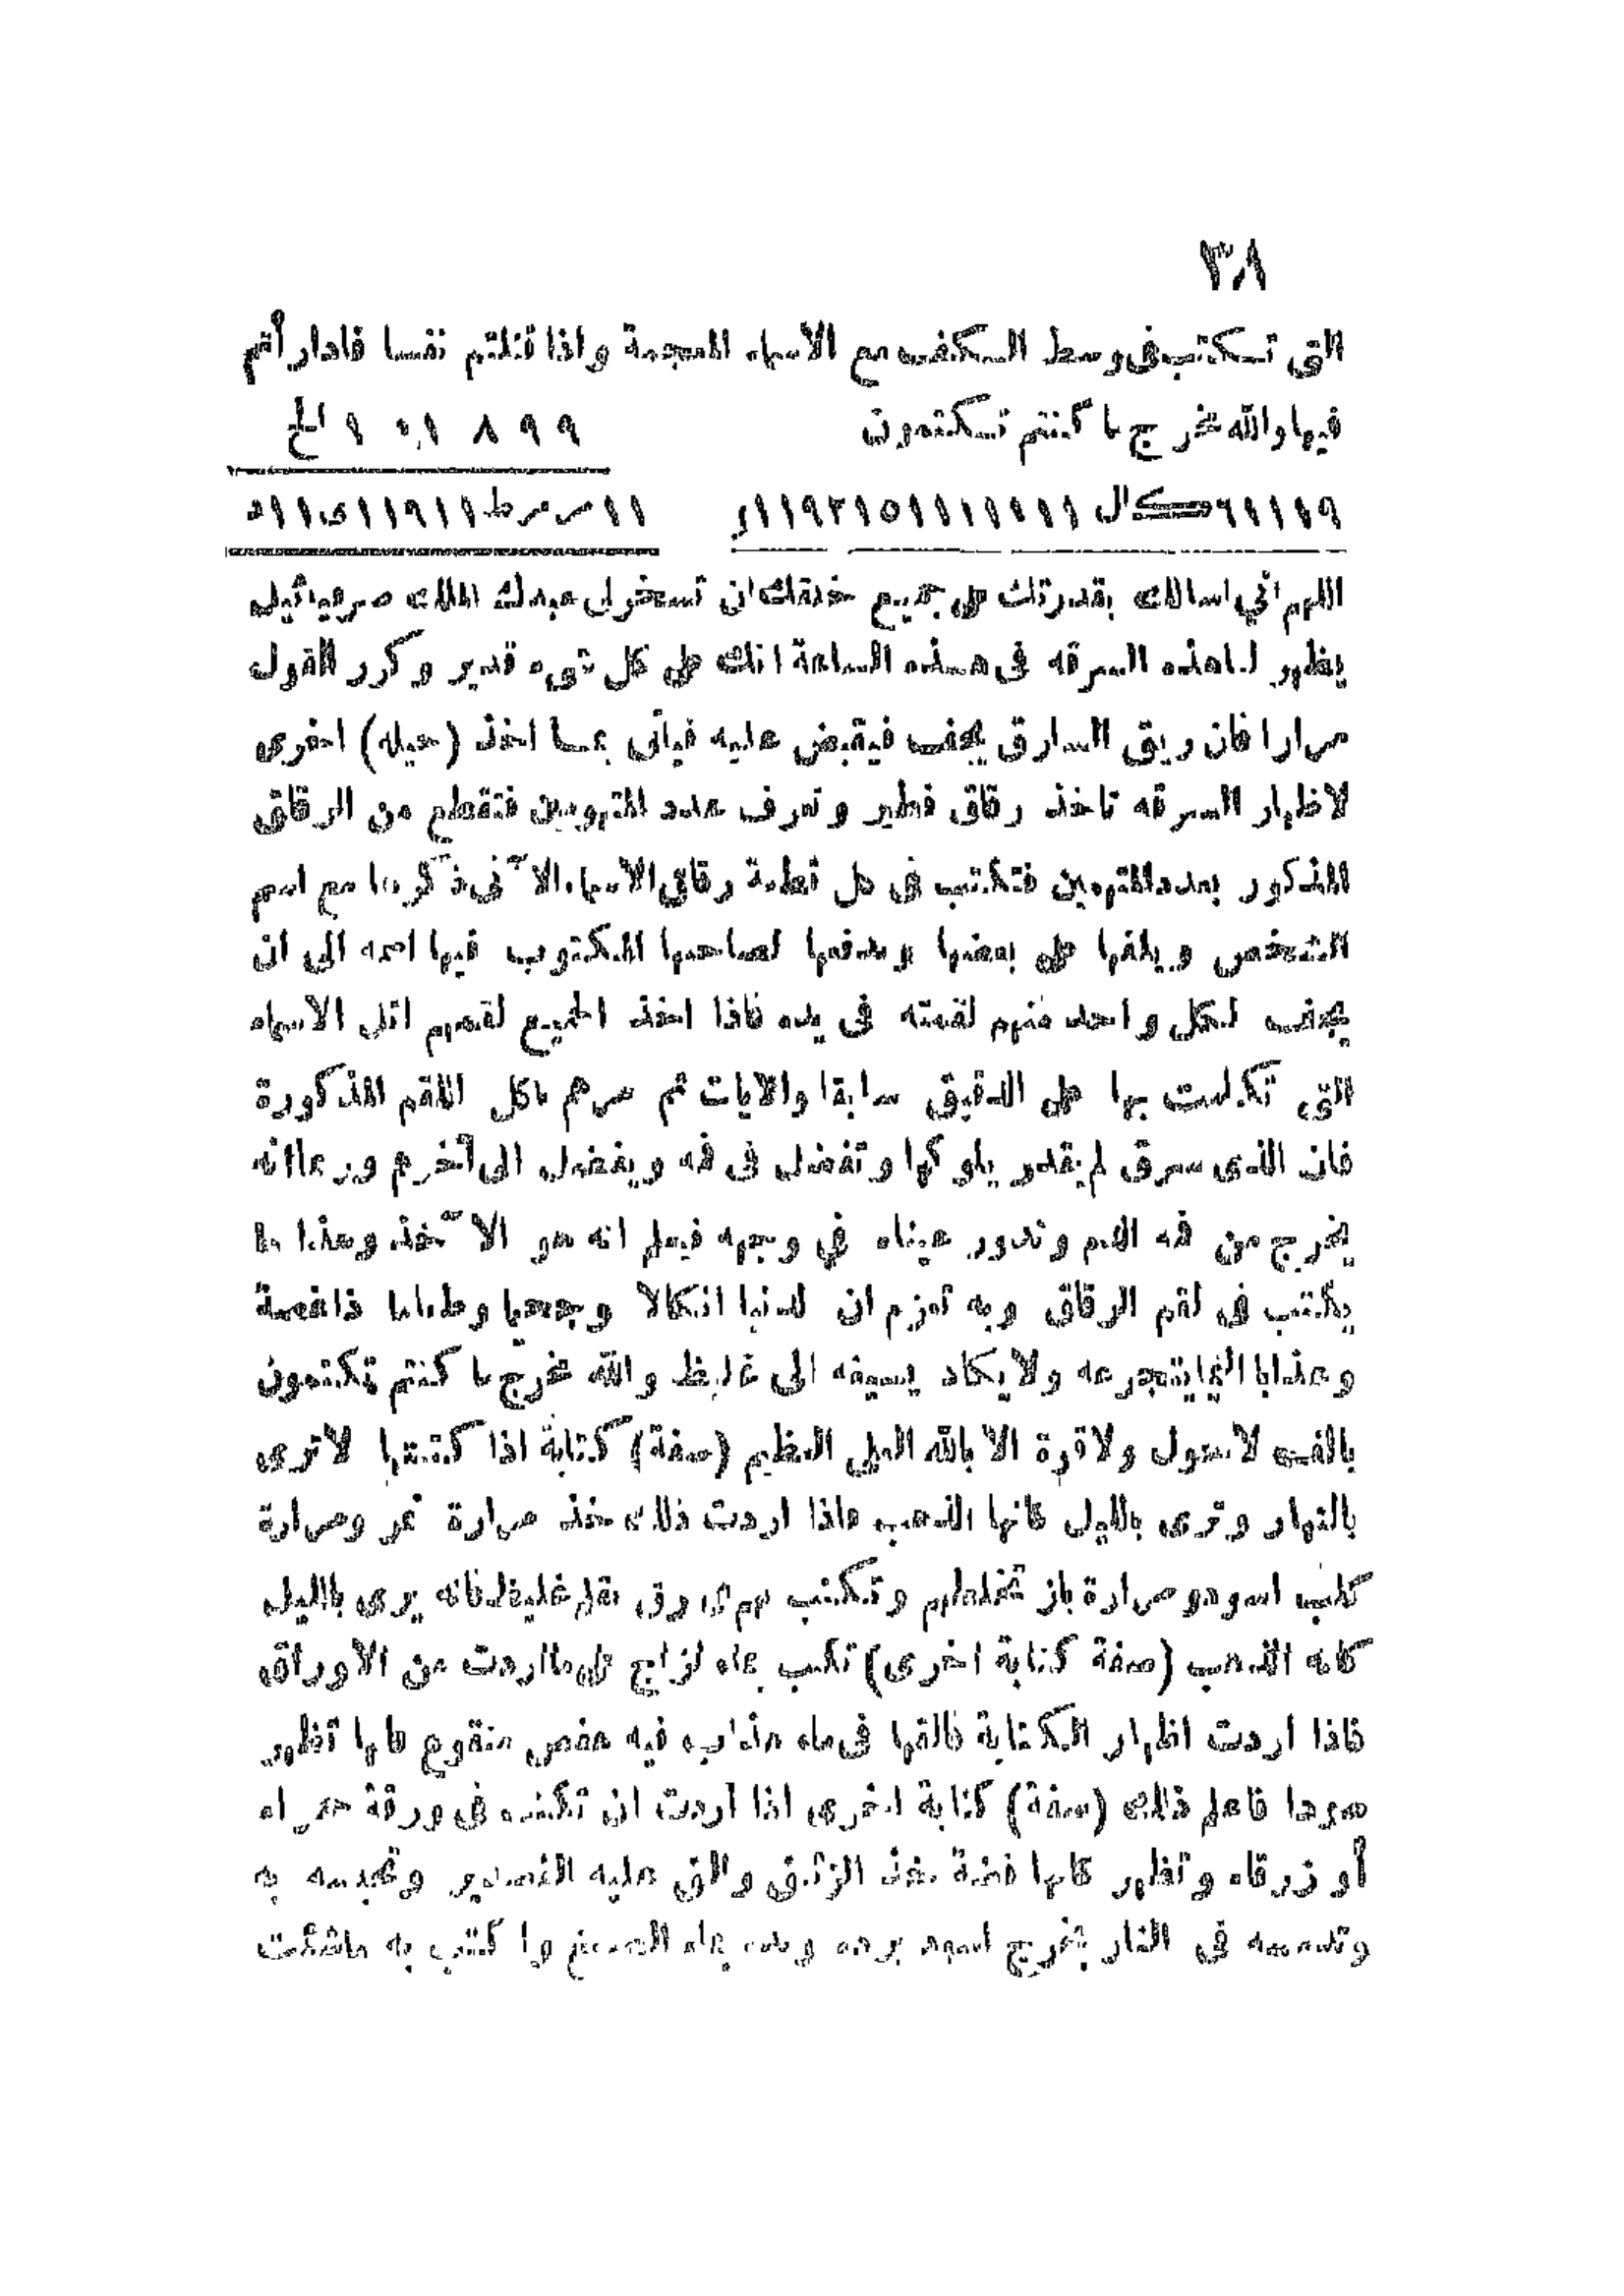 ٣٨
التى تكتب فى وسط الكف مع الاسماء المعجمة واذا قتلتم نفسا فادارأتم
فيها والله مخرج ما كنتم تكتمون ٩ ٩ ٨ ١ ١ الخ
اللهم انى اسالك بقدرتك على جميع خلقك ان تسخر لى عبدك الملك
يظهر لنا هذه السرقه فى هذه الساعة انك على كل شىء قدير وكرر القول
مرارا فان ريق السارق يجف فيقبض عليه فيأتى بما اخذ (حيله) اخرى
لاظهار السرقه تاخذ رقاق فطير وتعرف عدد المتهومين فتقطع من الرقاق
المذكور بعدد المتهمين فتكتب فى كل قطعة رقاق الاسماء الآتى ذكرها مع اسم
الشخص ويلقها على بعضها ويدفعها لصاحبها المكتوب فيها اسمه الى ان
يجف لكل واحد منهم لقمته فى يده فاذا اخذ الجميع لقمهم اتل الاسماء
التى تكلمت بها على الدقيق سابقا والايات ثم مرهم باكل اللقم المذكورة
فان الذى سرق لم يقدر يلوكها وتفضل فى فمه ويفضل الى آخرهم وربما انه
يخرج من فمه الدم وتدور عيناه في وجهه فيعلم انه هو الآخذ وهذا ما
يكتب فى لقم الرقاق وبه تعزم ان لدينا انكالا وجحيما وطعاما ذا غصة
وعذابا اليما يتجرعه ولا يكاد يسيغه الى غليظ والله مخرج ما كنتم تكتمون
بالف لا حول ولا قوة الا بالله العلى العظيم (صفة) كتابة اذا كتبتها لا ترى
بالنهار وترى بالليل كانها الذهب فاذا اردت ذلك خذ مرارة نمر ومرارة
كلب اسود ومرارة باز تخلطهم وتكتب بهم فى رق بقلم غليظ فانه يرى بالليل
كانه الذهب (صفة كتابة اخرى) تكتب بماء لزاج على ما اردت من الاوراق
فاذا اردت اظهار الكتابة فالقها فى ماء مذاب فيه عفص منقوع فانها تظهر
سودا فاعلم ذلك (صفة) كتابة اخرى اذا اردت ان تكتب فى ورقة حمراء
أو زرقاء وتظهر كانها فضة خذ الزئبق والق عليه القصدير به
فى النار يخرج اسود بماء الصمغ واكتب به ماشئت